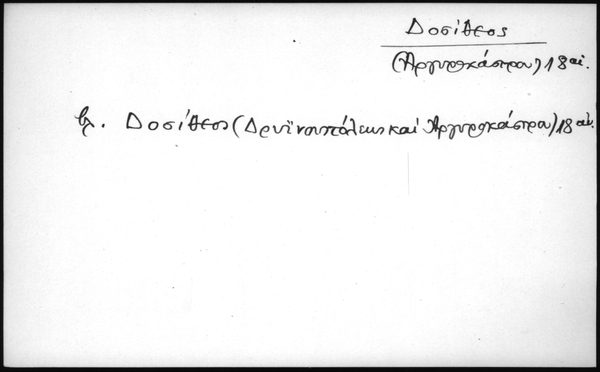 Δοσίθεος
(Αργυροκάστρου) 18 αι.
βλ. Δοσίθεος (Δρυϊνουπόλεως και Αργυροκάστρου) 18 αι.